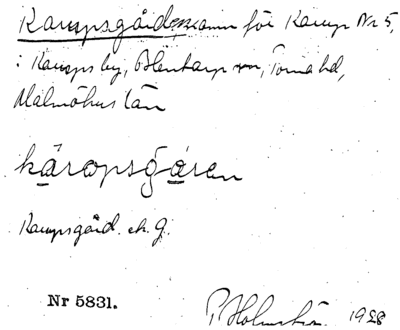 Karupsgården namn för Karup Nr 5,
i Karups by, Blentarp sn, Torna hd,
Malmöhus län
käropsgåren
Karupsgård. ek. g.
Nr 5831.
1928